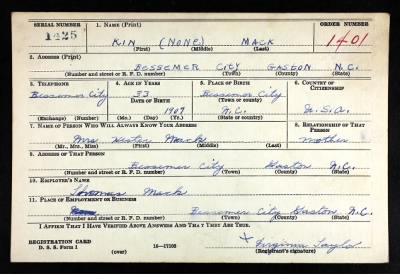 SERIAL NUMBER 1. NAME (Print) ORDER NUMBER
1425 KIN (NONE) MACK 1401
(First) (Middle) (Last)
2. ADDRESS (Print)
BESSEMER CITY GASTON N.C.
(Number and street or R. F. D. number) (Town) (County) (State)
3. TELEPHONE 4. AGE IN YEARS 5. PLACE OF BIRTH 6. COUNTRY OF CITIZENSHIP
Bessemer City 33 Bessemer City
DATE OF BIRTH (Town or county)
1907 N.C. U.S.A.
(Exchange) (Number) (Mo.) (Day) (Yr.) (State or country)
7. NAME OF PERSON WHO WILL ALWAYS KNOW YOUR ADDRESS 8. RELATIONSHIP OF THAT PERSON
Mrs Mack mother
(Mr., Mrs., Miss) (First) (Middle) (Last)
9. ADDRESS OF THAT PERSON
Bessemer City Gaston N.C.
(Number and street or R. F. D. number) (Town) (County) (State)
10. EMPLOYER'S NAME
Thomas Mack
11. PLACE OF EMPLOYMENT OR BUSINESS
Bessemer City Gaston N.C.
(Number and street or R. F. D. number) (Town) (County) (State)
I AFFIRM THAT I HAVE VERIFIED ABOVE ANSWERS AND THAT THEY ARE TRUE.
REGISTRATION CARD
D. S. S. Form 1 (over) 16-17105 x Virginia Taylor
(Registrant's signature)